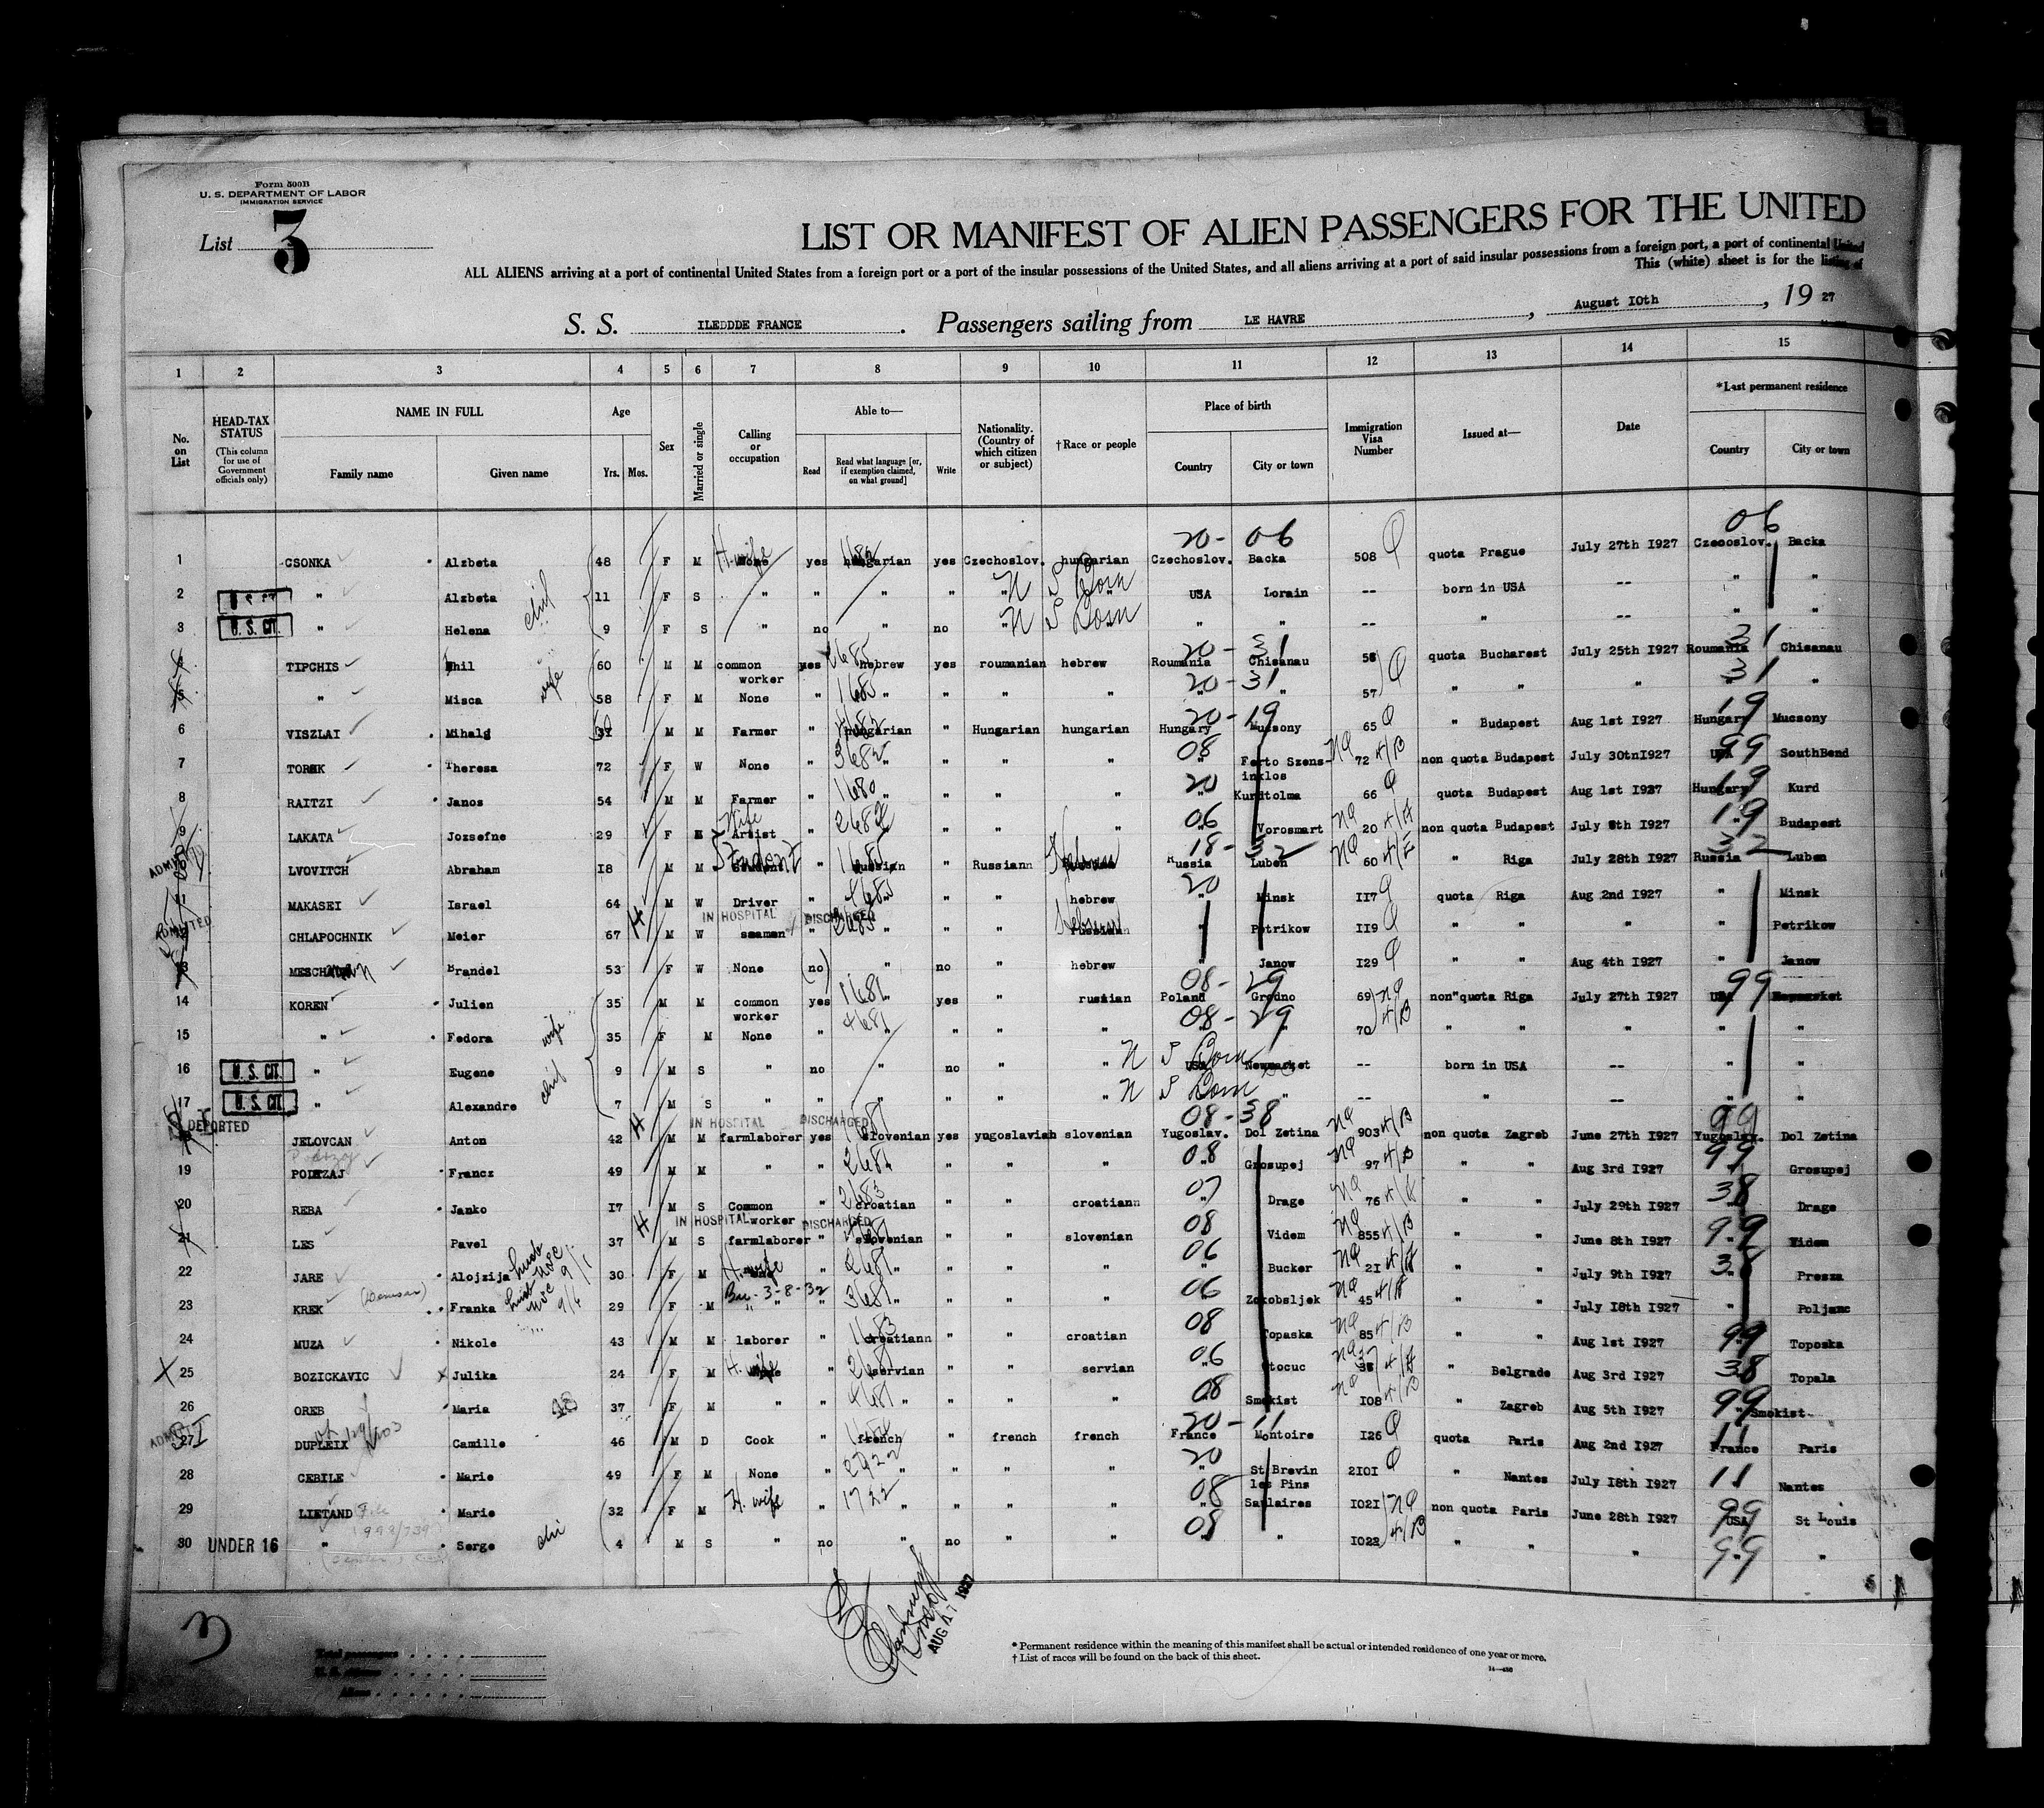 Form 500B
U. S. DEPARTMENT OF LABOR
IMMIGRATION SERVICE
List 3
LIST OR MANIFEST OF ALIEN PASSENGERS FOR THE UNITED
ALL ALIENS arriving at a port of continental United States from a foreign port or a port of the insular possessions of the United States, and all aliens arriving at a port of said insular possessions from a foreign port, a port of continental United
This (white) sheet is for the listing of
S. S. ILEDDDE FRANCE . Passengers sailing from LE HAVRE , August I0th , 19 27
1 2 3 4 5 6 7 8 9 10 11 12 13 14 15
No. on List
HEAD-TAX STATUS (This column for use of Government officials only)
NAME IN FULL Family name Given name
Age Yrs. Mos.
Sex
Married or single
Calling or occupation
Able to— Read Read what language [or, if exemption claimed, on what ground] Write
Nationality. (Country of which citizen or subject)
†Race or people
Place of birth Country City or town
Immigration Visa Number
Issued at—
Date
*Last permanent residence Country City or town
20- 06 06
1 CSONKA Alzbeta 48 F M H. wife yes hungarian yes Czechoslov. hungarian Czechoslov. Backa 508 Q quota Prague July 27th I927 Czecoslov. Backa
2 U.S. CIT. " Alzbeta 11 F S " " " " " U S Born USA Lorain -- born in USA -- " "
3 U. S. CIT. " Helena 9 F S " no " no " U S Born " " -- " -- " "
20 - 31 31
4 TIPCHIS hil 60 M M common worker yes hebrew yes roumanian hebrew Roumania Chisanau 58 Q quota Bucharest July 25th I927 Roumania Chisanau
5 " Misca wife 58 F M None " " " " " 20 - 31 " 57 " " " 31 "
6 VISZLAI Mihaly M M Farmer " hungarian " Hungarian hungarian 20-19 Hungary Mucsony 65 Q " Budapest Aug 1st I927 19 Hungary Mucsony
7 TOREK Theresa 72 F W None " 3682 " " " " 08 Ferto Szens-inklos 72 4/B non quota Budapest July 30tnI927 99 USA SouthBend
8 RAITZI Janos 54 M M Farmer " 1680 " " " " 20 Kurdtolma 66 Q quota Budapest Aug 1st I927 19 Hungary Kurd
9 LAKATA Jozsefne 29 F Wife Artist " 2682 " " " 06 Vorosmart 20 4/A non quota Budapest July 8th I927 19 Budapest
10 LVOVITCH Abraham I8 M M Student " russian " Russiann Hebrew 18-32 Russia Luben 60 4/E " Riga July 28th I927 32 Russia Luben
11 MAKASEI Israel 64 M W Driver " " " hebrew 20 Minsk II7 Q quota Riga Aug 2nd I927 " Minsk
ADMITTED H IN HOSPITAL DISCHARGED
CHLAPOCHNIK Meier 67 M W seaman " 2685 " " Hebrew Petrikow II9 Q " " " " Petrikow
13 Brandel 53 F W None (no) " no " hebrew Janow I29 Q " " Aug 4th I927 " Janow
14 KOREN Julien 35 M M common worker yes 1681 yes " russian 08-29 Poland Grodno 69 non"quota Riga July 27th I927 99 USA
15 " Fedora wife 35 F M None " 4681 " " " 08-29 " 70 4/B " " " " "
16 U. S. CIT. " Eugene 9 M S " no " no " " U S Born USA Newmarket -- born in USA -- " "
17 U. S. CIT. " Alexandre 7 M S " " " " " " U S Born " -- " -- " "
DEPORTED H IN HOSPITAL DISCHARGED 08-38 99
JELOVCAN Anton 42 M M farmlaborer yes slovenian yes yugoslavian slovenian Yugoslav. Dol Zetina 903 4/B non quota Zagreb June 27th I927 Yugoslav. Dol Zetina
19 Francz 49 M M " " " " " 08 Grosupej 97 4/B " " Aug 3rd I927 99 Grosupej
20 REBA Janko I7 M S Common worker " croatian " " croatiann 07 Drage 76 " " July 29th I927 38 Drage
H IN HOSPITAL DISCHARGED
21 LES Pavel 37 M S farmlaborer " slovenian " " slovenian 08 Videm 855 4/B " " June 8th I927 99 Videm
22 JARE Alojzija 30 F M H. wife " 2681 " " " " 06 Bucker 2I 4/A " " July 9th I927 38 Presza
23 KREK Franka 29 F M Bu- 3-8-32 " 3681 " " " " 06 45 4/A " " July I8th I927 " Poljanc
24 MUZA Nikole 43 M M laborer " croatiann " " croatian 08 Topaska 85 4/B " " Aug 1st I927 99 Toposka
25 BOZICKAVIC Julika 24 F M H. wife " servian " " servian 06 Otocuc 4/A " Belgrade Aug 3rd I927 38 Topala
26 OREB Maria 37 F M " " 4681 " " " " 08 Smokist I08 4/B " Zagreb Aug 5th I927 99 Smokist
27 DUPLEIX Camille 46 M D Cook " french " french french 20-11 France Montoire I26 Q quota Paris Aug 2nd I927 11 France Paris
28 CEBILE Marie 49 F M None " " " " " 20 St Brevin les Pins 2I0I Q " Nantes July I8th I927 11 Nantes
29 LIETAND Marie 32 F M H. wife " 1722 " " " " 08 Saulaires I02I non quota Paris June 28th I927 99 USA St Louis
30 UNDER 16 " Serge 4 M S " no " no " " 08 " I022 4/B " " " 99 "
AUG 17 1927
Total passengers
U. S. citizens
Aliens
* Permanent residence within the meaning of this manifest shall be actual or intended residence of one year or more.
† List of races will be found on the back of this sheet.
14—430